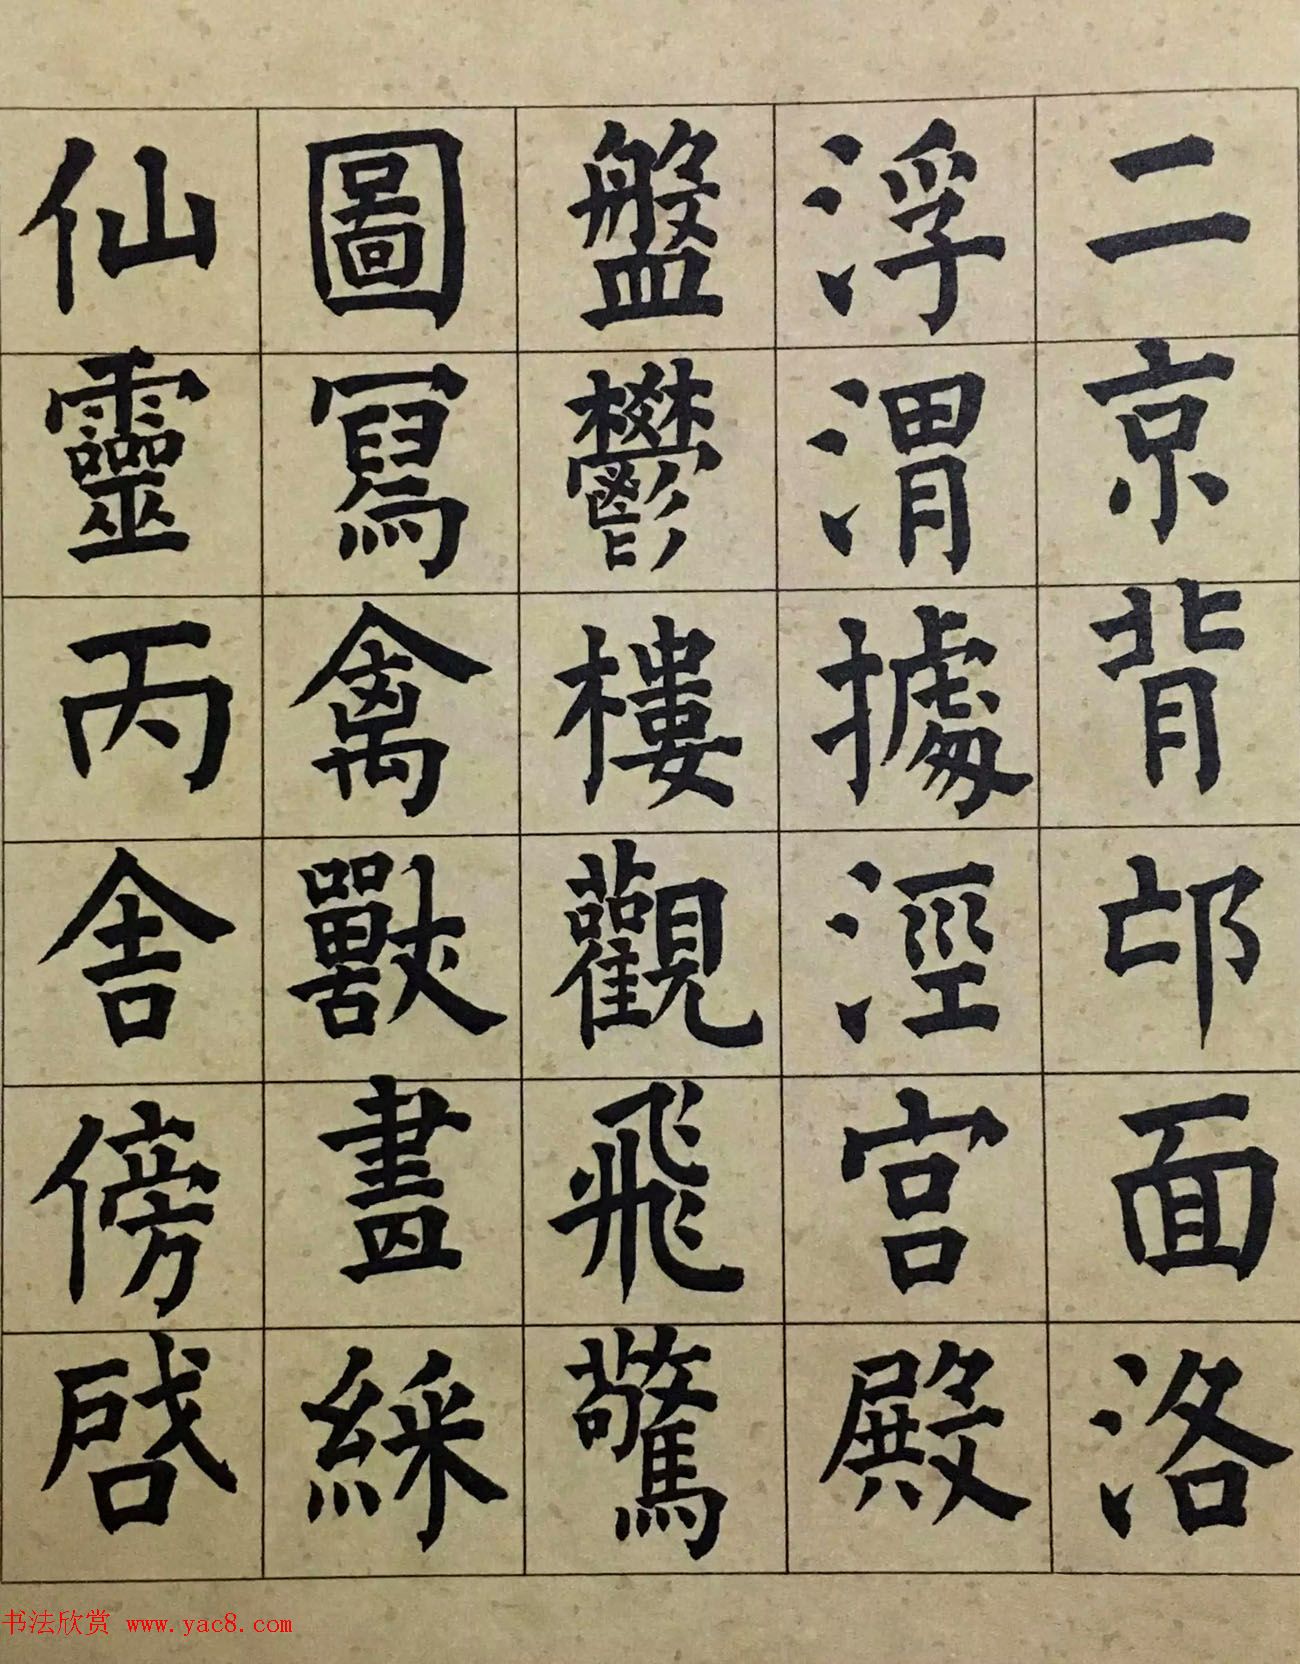 二京背邙面洛
浮渭據涇宮殿
盤鬱樓觀飛驚
圖寫禽獸畫綵
仙靈丙舍傍啓
书法欣赏 www.yac8.com